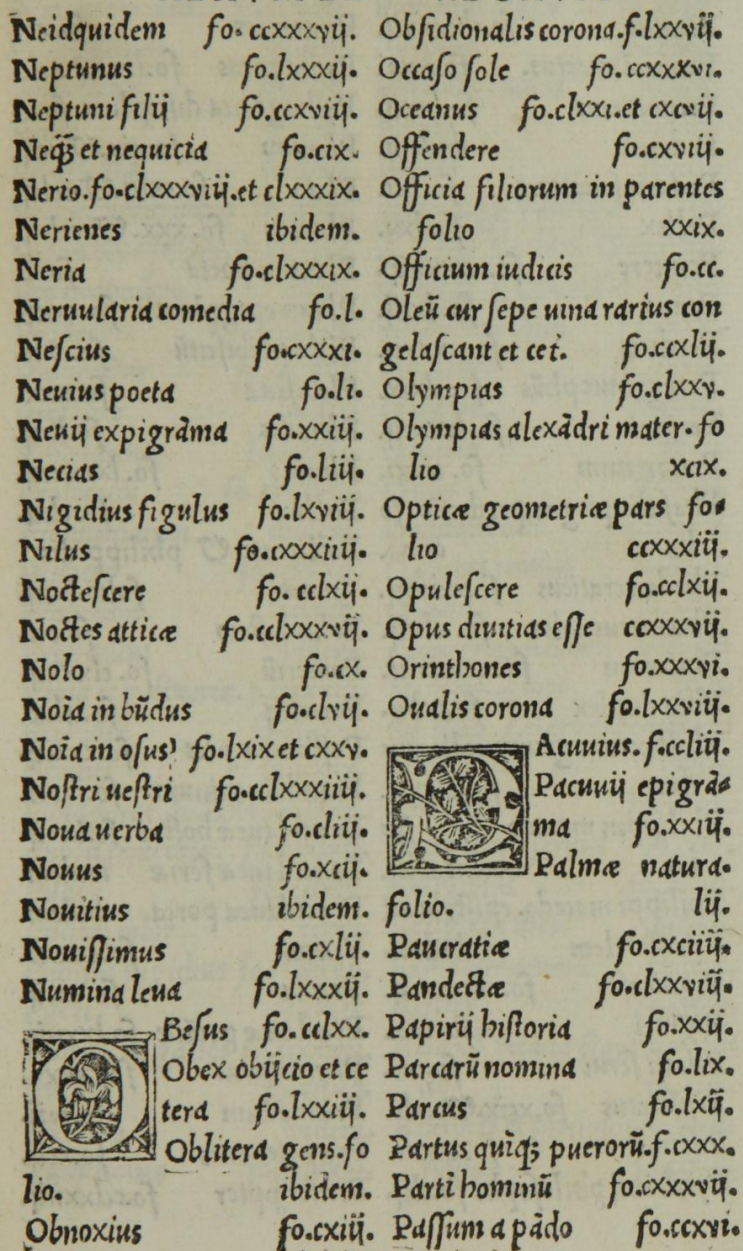 Neidquidem fo. ccxxxvij.
Neptunus fo.lxxxij.
Neptuni filij fo.ccxviij.
Neq̃ꝫ et nequicia fo.cix.
Nerio.fo.clxxxviij.et clxxxix.
Nerienes ibidem.
Neria fo.clxxxix.
Neruularia comedia fo.l.
Neſcius fo.cxxxi.
Neuius poeta fo.li.
Neuij expigrãma fo.xxiij.
Necias fo.liij.
Nigidius figulus fo.lxviij.
Nilus fo.cxxxiiij.
Nocteſcere fo. cclxij.
Noctes atticæ fo.cclxxxvij.
Nolo fo.cx.
Noĩa in bũdus fo.clvij.
Noĩa in oſus' fo.lxix et cxxv.
Noſtri ueſtri fo.cclxxxiiij.
Noua uerba fo.cliij.
Nouus fo.xcij.
Nouitius ibidem.
Nouiſſimus fo.cxlij.
Numina leua fo.lxxxij.
OBeſus fo. cclxx.
Obex obijcio et ce
tera fo.lxxiij.
Oblitera gens.fo
lio. ibidem.
Obnoxius fo.cxiij.
Obſidionalis corona.f.lxxvij.
Occaſo ſole fo. ccxxxvi.
Oceanus fo.clxxi.et cxcvij.
Offendere fo.cxviij.
Officia filiorum in parentes
folio xxix.
Officium iudicis fo.cc.
Oleũ cur ſepe uina rarius con
gelaſcant et cet. fo.ccxlij.
Olympias fo.clxxv.
Olympias alexãdri mater. fo
lio xcix.
Opticæ geometriæ pars fo.
lio ccxxxiij.
Opuleſcere fo.cclxij.
Opus diuitias eſſe ccxxxvij.
Orinthones fo.xxxvi.
Oualis corona fo.lxxviij.
PAcuuius. f.ccliij.
Pacuuij epigrã.
ma fo.xxiij.
Palmæ natura.
folio. lij.
Paucratiæ fo.cxciiij.
Pandectæ fo.clxxviij.
Papirij hiſtoria fo.xxij.
Parcarũ nomina fo.lix.
Parcus fo.lxij.
Partus quĩq; puerorũ.f.cxxx.
Partĩ hominũ fo.cxxxvij.
Paſſum a pãdo fo.ccxvi.